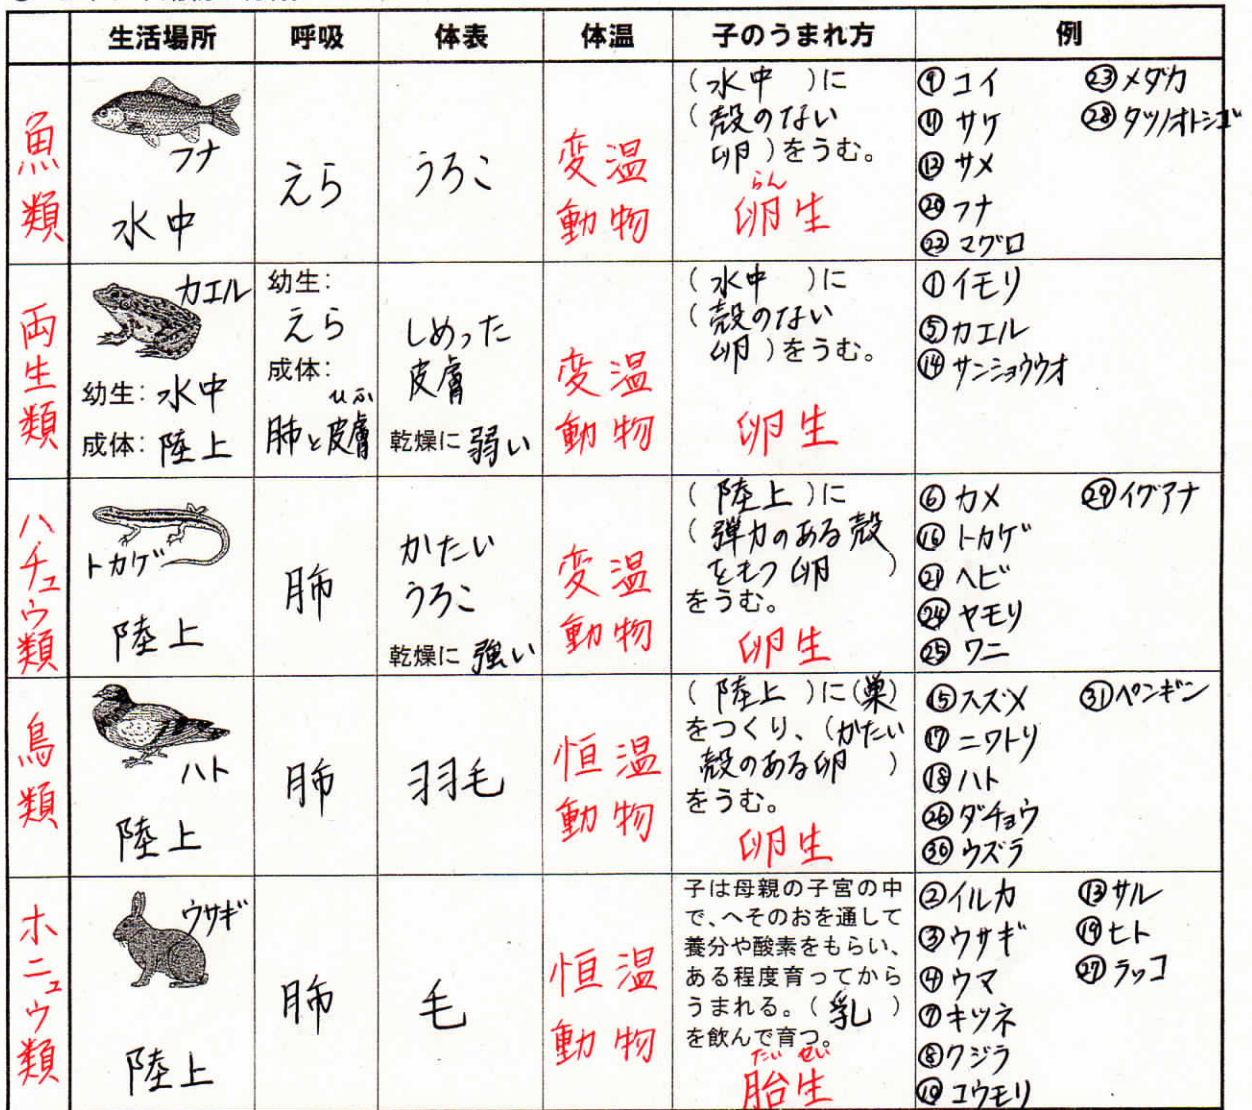 生活場所 呼吸 体表 体温 子のうまれ方 例
魚類
フナ
水中
えら
うろこ
変温
動物
(水中)に
(殻のない
卵)をうむ。
らん
卵生
⑨コイ
⑪サケ
⑫サメ
⑳フナ
㉒マグロ
㉓メダカ
㉘タツノオトシゴ
両生類
カエル
幼生:水中
成体:陸上
幼生:
えら
成体:
ひふ
肺と皮膚
しめった
皮膚
乾燥に弱い
変温
動物
(水中)に
(殻のない
卵)をうむ。
卵生
①イモリ
⑤カエル
⑭サンショウウオ
ハチュウ類
トカゲ
陸上
肺
かたい
うろこ
乾燥に強い
変温
動物
(陸上)に
(弾力のある殻
をもつ卵)
をうむ。
卵生
⑥カメ
⑯トカゲ
㉑ヘビ
㉔ヤモリ
㉕ワニ
㉙イグアナ
鳥類
ハト
陸上
肺
羽毛
恒温
動物
(陸上)に(巣)
をつくり、(かたい
殻のある卵)
をうむ。
卵生
⑮スズメ
⑰ニワトリ
⑱ハト
㉖ダチョウ
㉚ウズラ
㉛ペンギン
ホニュウ類
ウサギ
陸上
肺
毛
恒温
動物
子は母親の子宮の中
で、へそのおを通して
養分や酸素をもらい、
ある程度育ってから
うまれる。(乳)
を飲んで育つ。
たいせい
胎生
②イルカ
③ウサギ
④ウマ
⑦キツネ
⑧クジラ
⑩コウモリ
⑬サル
⑲ヒト
㉗ラッコ